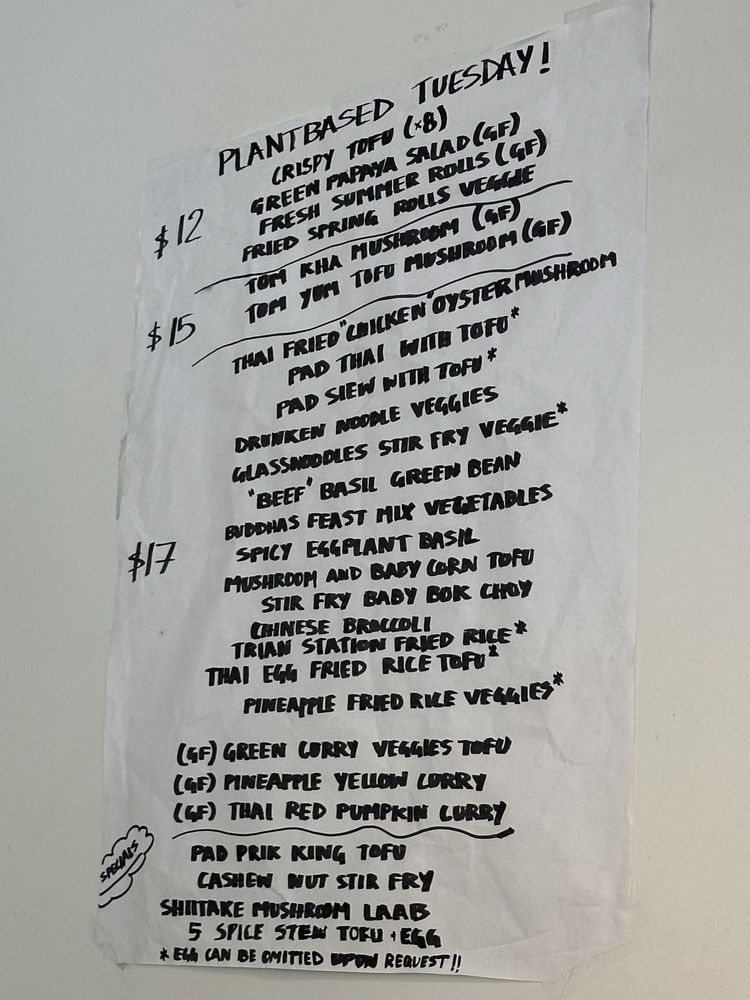 PLANTBASED TUESDAY!
CRISPY TOFU (x8)
GREEN PAPAYA SALAD (GF)
FRESH SUMMER ROLLS (GF)
$12
FRIED SPRING ROLLS VEGGIE
TOM KHA MUSHROOM (GF)
TOM YUM TOFU MUSHROOM (GF)
$15
THAI FRIED "CHICKEN" OYSTER MUSHROOM
PAD THAI WITH TOFU*
PAD SIEW WITH TOFU*
DRUNKEN NOODLE VEGGIES
GLASSNOODLES STIR FRY VEGGIE*
"BEEF" BASIL GREEN BEAN
BUDDHAS FEAST MIX VEGETABLES
$17
SPICY EGGPLANT BASIL
MUSHROOM AND BABY CORN TOFU
STIR FRY BABY BOK CHOY
CHINESE BROCCOLI
TRIAN STATION FRIED RICE*
THAI EGG FRIED RICE TOFU*
PINEAPPLE FRIED RICE VEGGIES*
(GF) GREEN CURRY VEGGIES TOFU
(GF) PINEAPPLE YELLOW CURRY
(GF) THAI RED PUMPKIN CURRY
SPECIALS
PAD PRIK KING TOFU
CASHEW NUT STIR FRY
SHIITAKE MUSHROOM LAAB
5 SPICE STEW TOFU + EGG
* EGG CAN BE OMITTED UPON REQUEST!!